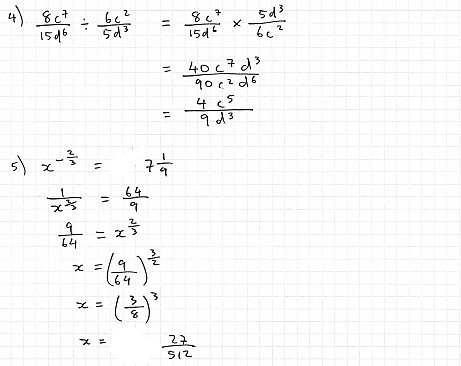 4) 8c⁷/15d⁶ ÷ 6c²/5d³ = 8c⁷/15d⁶ × 5d³/6c²
= 40c⁷d³/90c²d⁶
= 4c⁵/9d³
5) x^(-2/3) = 7 1/9
1/x^(2/3) = 64/9
9/64 = x^(2/3)
x = (9/64)^(3/2)
x = (3/8)³
x = 27/512